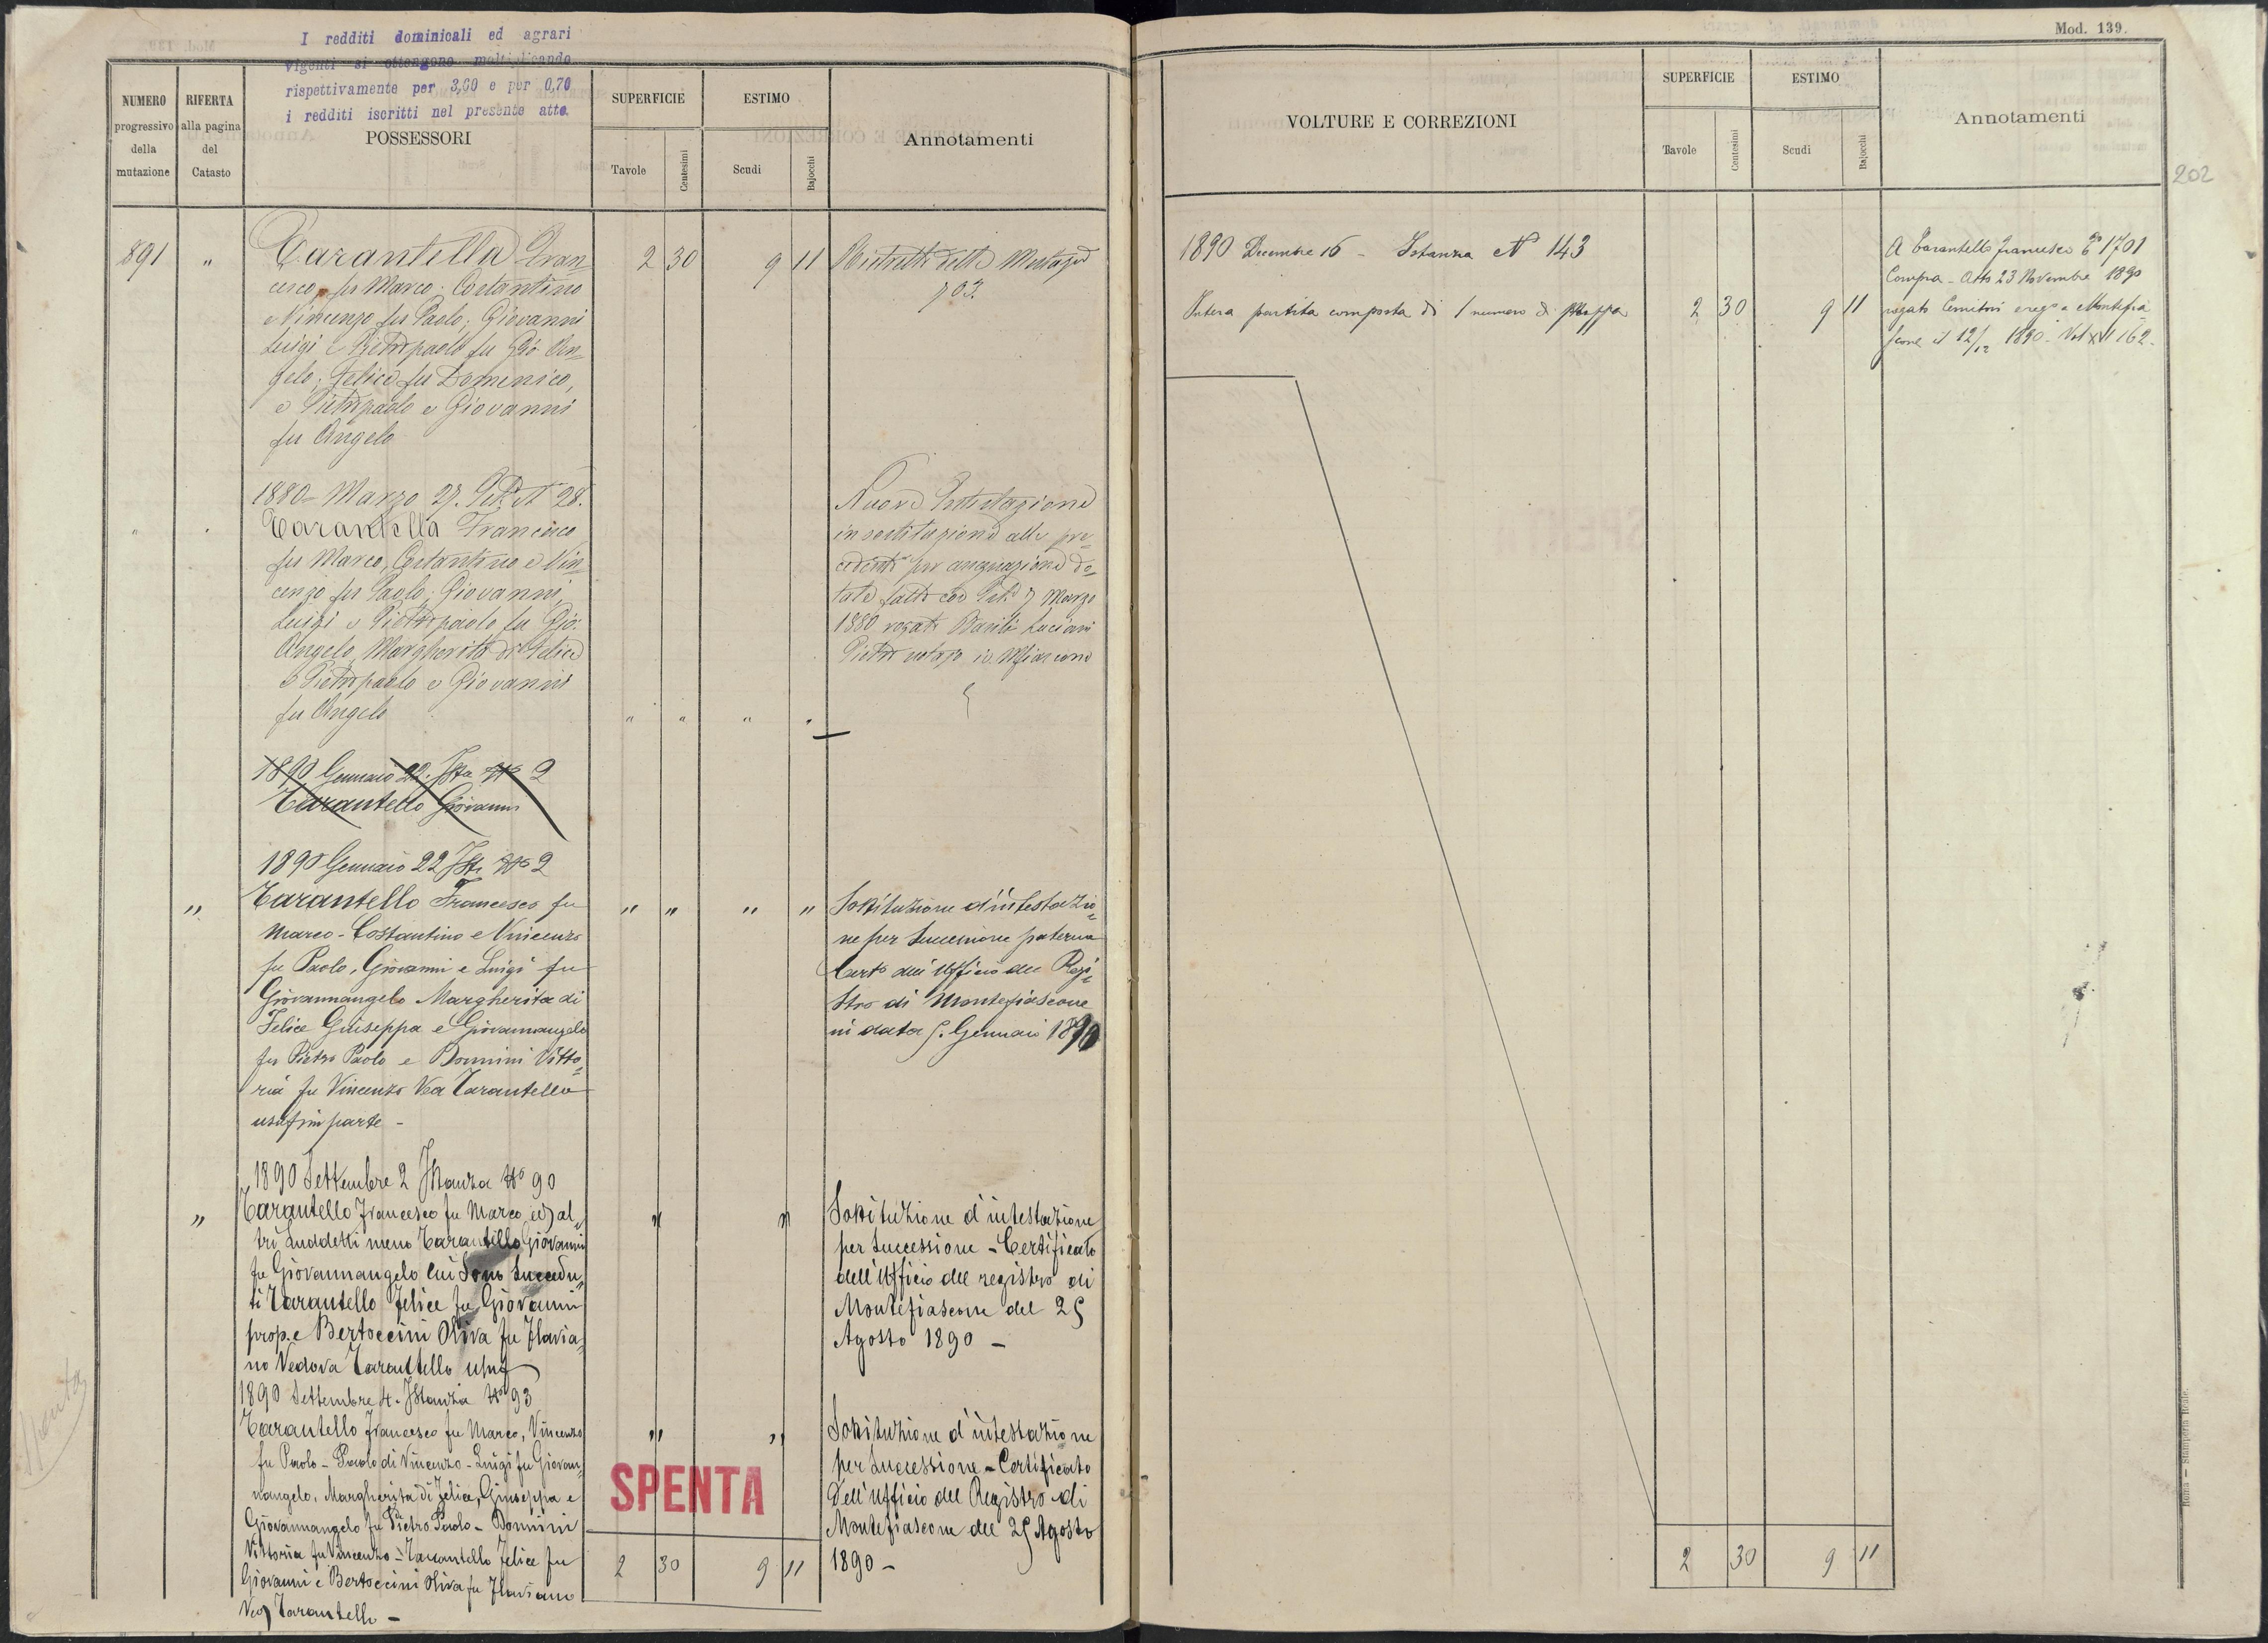 I redditi dominicali ed agrari
vigenti si ottengono moltiplicando
rispettivamente per 3,60 e per 0,70
i redditi iscritti nel presente atto.
NUMERO
progressivo
della
mutazione
RIFERTA
alla pagina
del
Catasto
POSSESSORI
SUPERFICIE
Tavole
Centesimi
ESTIMO
Scudi
Bajocchi
Annotamenti
891
"
Tarantella Fran
cesco fu Marco; Costantino
e Vincenzo fu Paolo; Giovanni
Luigi e Pietropaolo fu Gio An=
gelo; Felice fu Domenico,
e Pietropaolo e Giovanni
fu Angelo
2 30
9 11
della
703
1880= Marzo 27. N 28.
Tarantella Francesco
fu Marco, Costantino e Vin=
cenzo fu Paolo; Giovanni,
Luigi e Pietropaolo fu Gio:
Angelo, Margherita di Felice
e Pietropaolo e Giovanni
fu Angelo
" " " "
Nuova Intestazione
in sostituzione alla pre=
cedente per do=
tale fatta con 7 Marzo
1880 rogato Basili Luciani
Pietro notajo in Mfiascone
1890 Gennaio 22. Ista No 2
Tarantello Giovanni
1890 Gennaio 22 Ista No 2
"
Tarantello Francesco fu
Marco - Costantino e Vincenzo
fu Paolo, Giovanni e Luigi fu
Giovannangelo Margherita di
Felice Giuseppa e Giovannangelo
fu Pietro Paolo e Donnini Vitto=
ria fu Vincenzo Va Tarantello
usuf in parte -
" " " "
Sostituzione d'intestazio=
ne per Successione paterna
Certo dell'Ufficio del Regi=
stro di Montefiascone
in data 5. Gennaio 1890
1890 Settembre 2 Istanza No 90
"
Tarantello Francesco fu Marco ed al=
tri Suddetti meno Tarantello Giovanni
fu Giovannangelo cui Sono Succedu=
ti Tarantello Felice fu Giovanni
prop. e Bertoccini Oliva fu Flavia=
no Vedova Tarantello usuf
" "
Sostituzione d'intestazione
per Successione - Certificato
dell'Ufficio del registro di
Montefiascone del 25
Agosto 1890 -
1890 Settembre 4. Istanza No 93
Tarantello Francesco fu Marco, Vincenzo
fu Paolo - Paolo di Vincenzo - Luigi fu Giovan=
nangelo, Margherita di Felice, Giuseppa e
Giovannangelo fu Pietro Paolo - Donnini
Vittoria fu Vincenzo - Tarantello Felice fu
Giovanni e Bertoccini Oliva fu Flaviano
Ved Tarantello -
" "
SPENTA
2 30 9 11
Sostituzione d'intestazione
per Successione - Certificato
Dell'Ufficio del Registro di
Montefiascone del 25 Agosto
1890 -
Spenta
Mod. 139.
VOLTURE E CORREZIONI
SUPERFICIE
Tavole
Centesimi
ESTIMO
Scudi
Bajocchi
Annotamenti
202
1890 Decembre 16 - Istanza N 143
Intera partita composta di 1 numero di Mappa
2 30
9 11
A Tarantello Francesco 1701
Compra - Atto 23 Novembre 1890
rogato e rego a Montefia
scone il 12/12 1890 - Vol XVI 162.
2 30 9 11
Roma — Stamperia Reale.